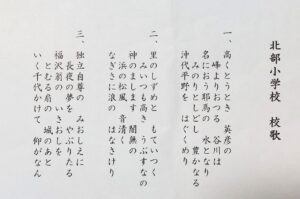 北部小学校 校歌
一、高くとうとき 英彦の
峰よりおつる 谷川は
名におう耶馬の 水となり
みのりとしどし 豊かなる
沖代平野を はぐくめり
二、里のしずめと もていつく
みいつも高き うぶすなの
神のまします 闇無の
浜の松風 音清く
なぎさに浪の はなさけり
三、独立自尊の みおしえに
長夜の夢を やぶりたる
福沢翁の いさおしを
とむる扇の 城のあと
いく千代かけて 仰がなん